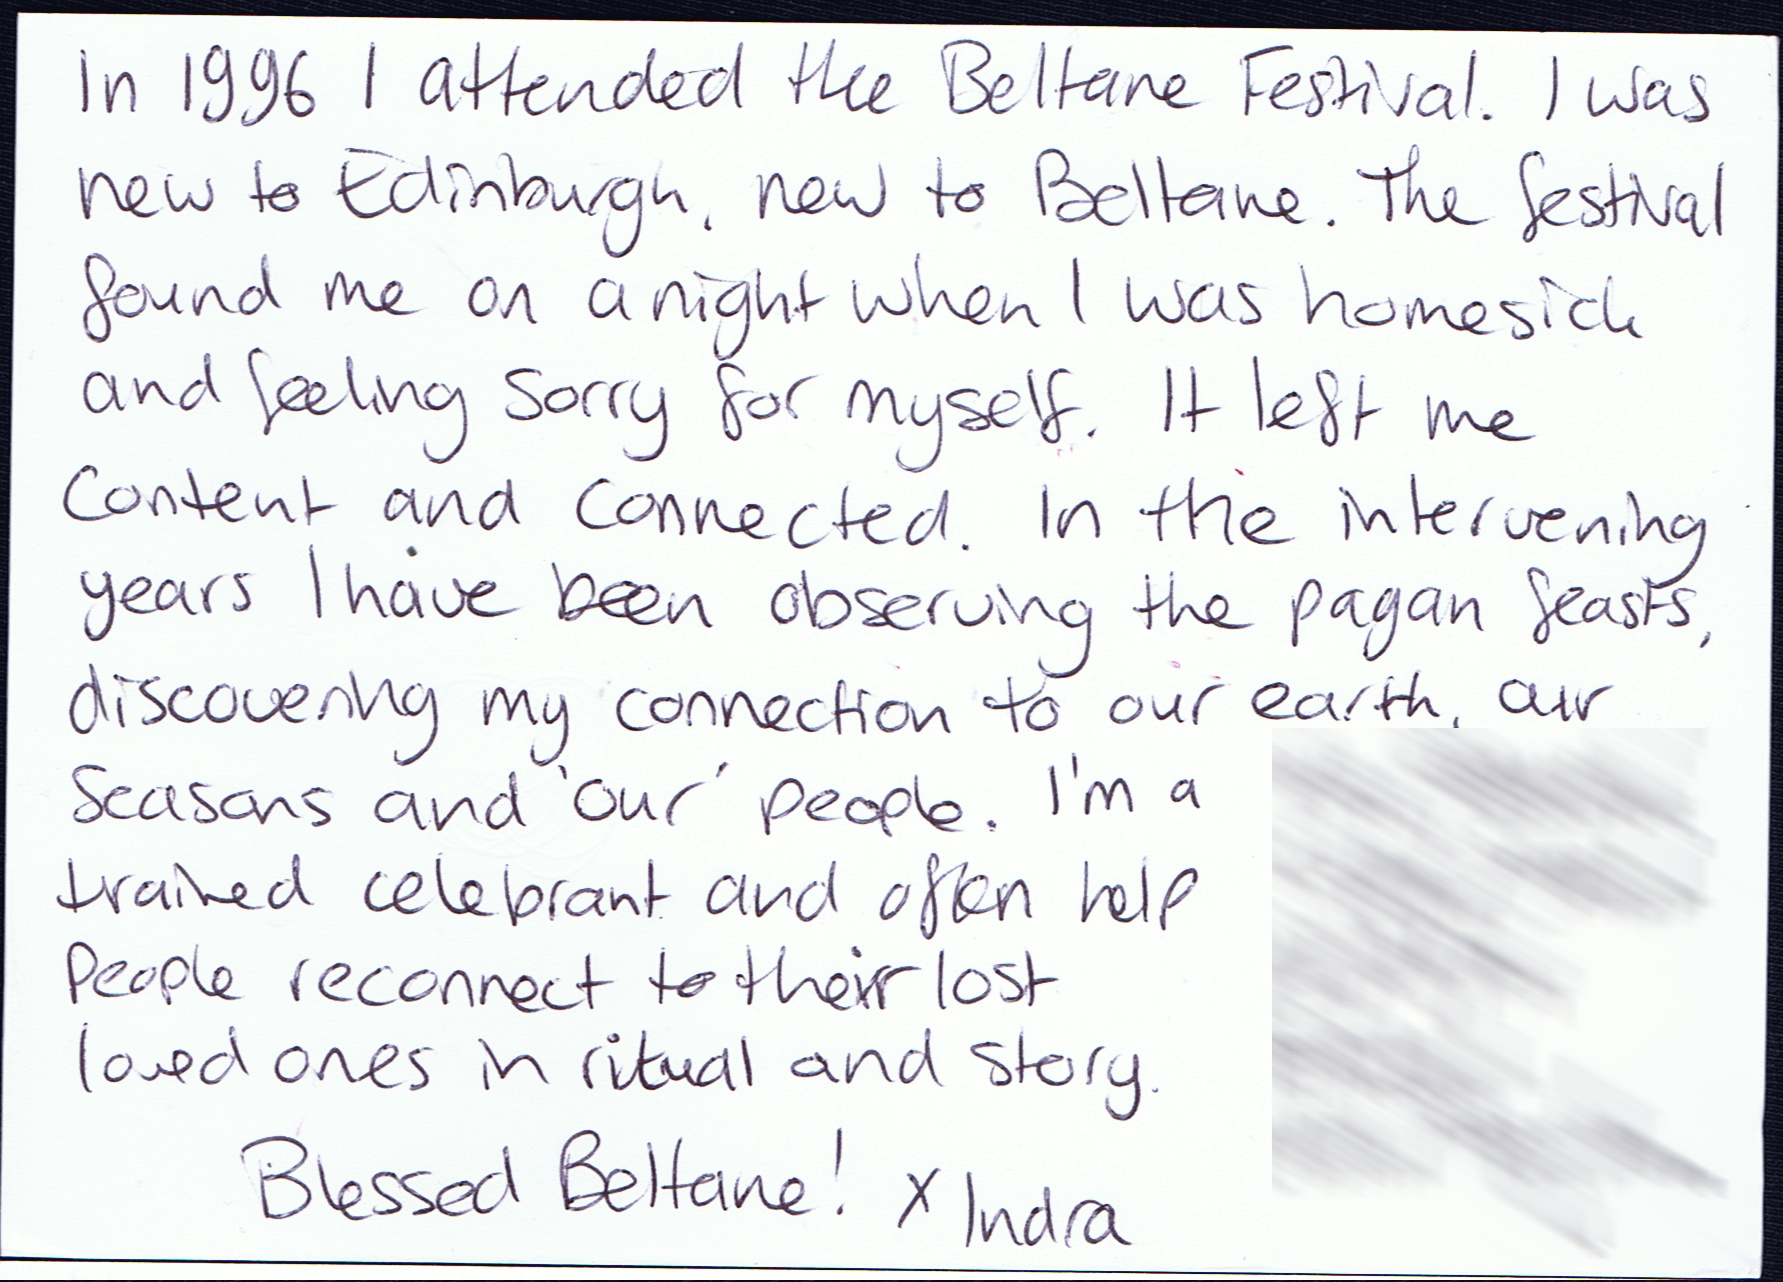 In 1996 I attended the Beltane Festival. I was
new to Edinburgh, new to Beltane. The festival
found me on a night when I was homesick
and feeling sorry for myself. It left me
content and connected. In the intervening
years I have been observing the pagan feasts,
discovering my connection to our earth, our
seasons and 'our' people. I'm a
trained celebrant and often help
people reconnect to their lost
loved ones in ritual and story.
Blessed Beltane! x Indra